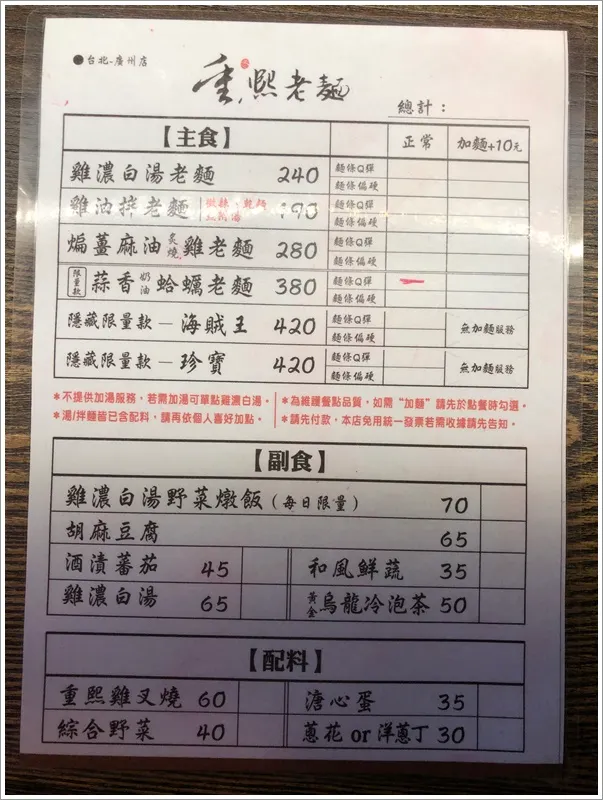 ●台北-廣州店
重熙老麵
總計：
【主食】 正常 加麵+10元
雞濃白湯老麵 240 麵條Q彈
麵條偏硬
雞油拌老麵 190 麵條Q彈
麵條偏硬
煸薑麻油炙燒雞老麵 280 麵條Q彈
麵條偏硬
限量款 蒜香奶油蛤蠣老麵 380 麵條Q彈
麵條偏硬
隱藏限量款－海賊王 420 麵條Q彈 無加麵服務
麵條偏硬
隱藏限量款－珍寶 420 麵條Q彈 無加麵服務
麵條偏硬
*不提供加湯服務，若需加湯可單點雞濃白湯。
*湯/拌麵皆已含配料，請再依個人喜好加點。
*為維護餐點品質，如需“加麵”請先於點餐時勾選。
*請先付款，本店免用統一發票若需收據請先告知。
【副食】
雞濃白湯野菜燉飯（每日限量） 70
胡麻豆腐 65
酒漬蕃茄 45 和風鮮蔬 35
雞濃白湯 65 黃金烏龍冷泡茶 50
【配料】
重熙雞叉燒 60 溏心蛋 35
綜合野菜 40 蔥花 or 洋蔥丁 30